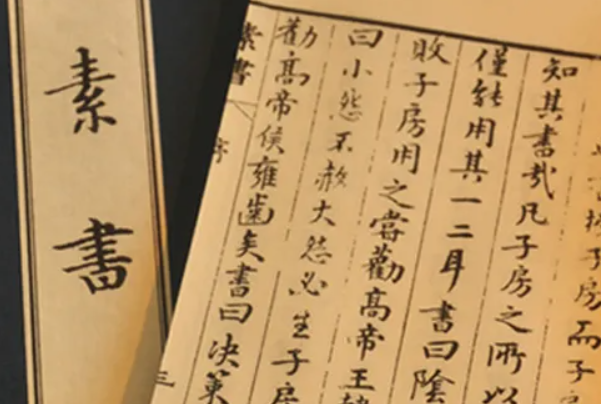 子房而子
知其書哉凡子房之所以
僅能用其一二耳書曰陰
敗子房用之嘗勸高帝王
曰小怨不赦大怨必生子房
勸高帝侯雍齒矣書曰决策
素書
序
三
素書